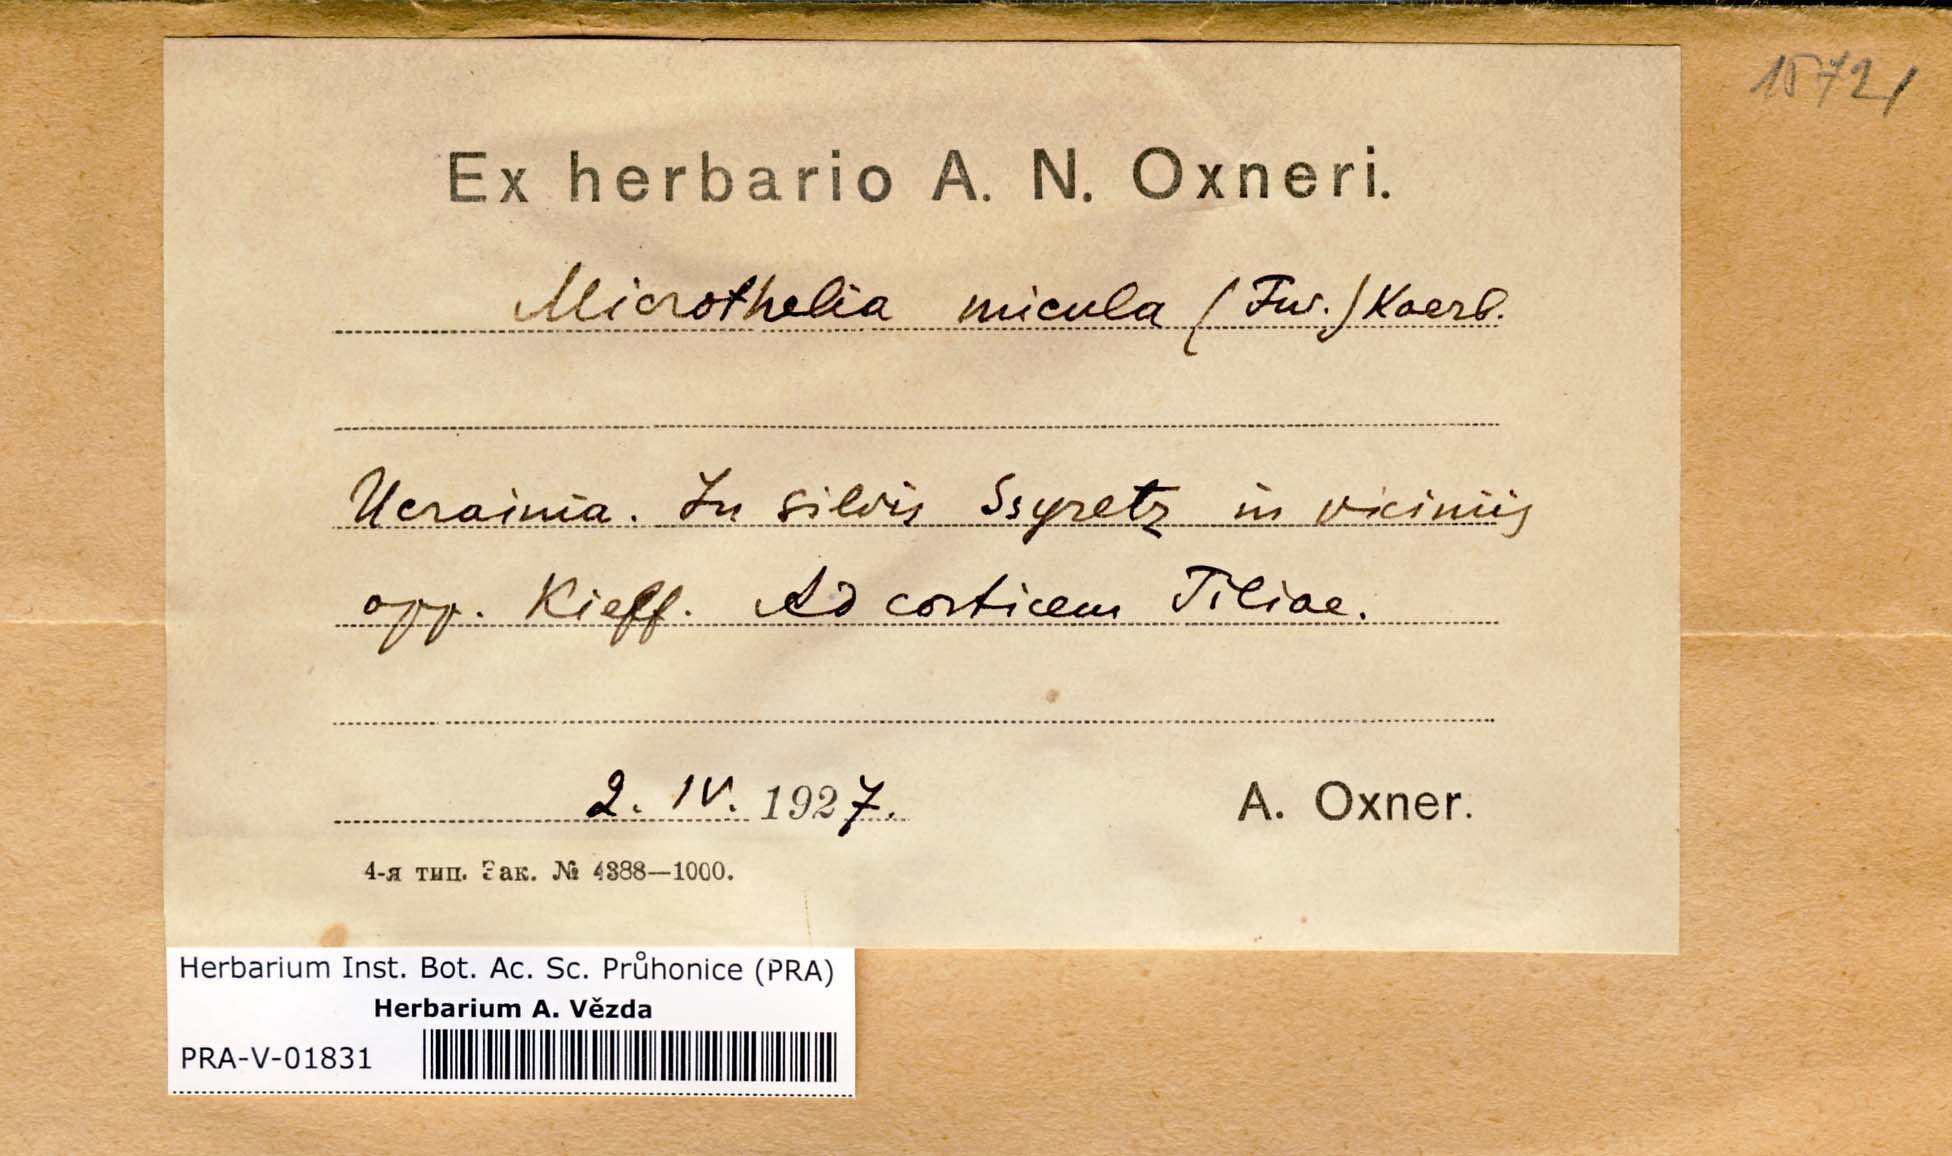 15721
Ex herbario A. N. Oxneri.
Microthelia micula (Fw.) Koerb.
Ucrainia. In silvis Ssyretz in viciniis
opp. Kieff. Ad corticem Tiliae.
2. IV. 1927.
A. Oxner.
4-я тип. Зак. № 4388—1000.
Herbarium Inst. Bot. Ac. Sc. Průhonice (PRA)
Herbarium A. Vězda
PRA-V-01831